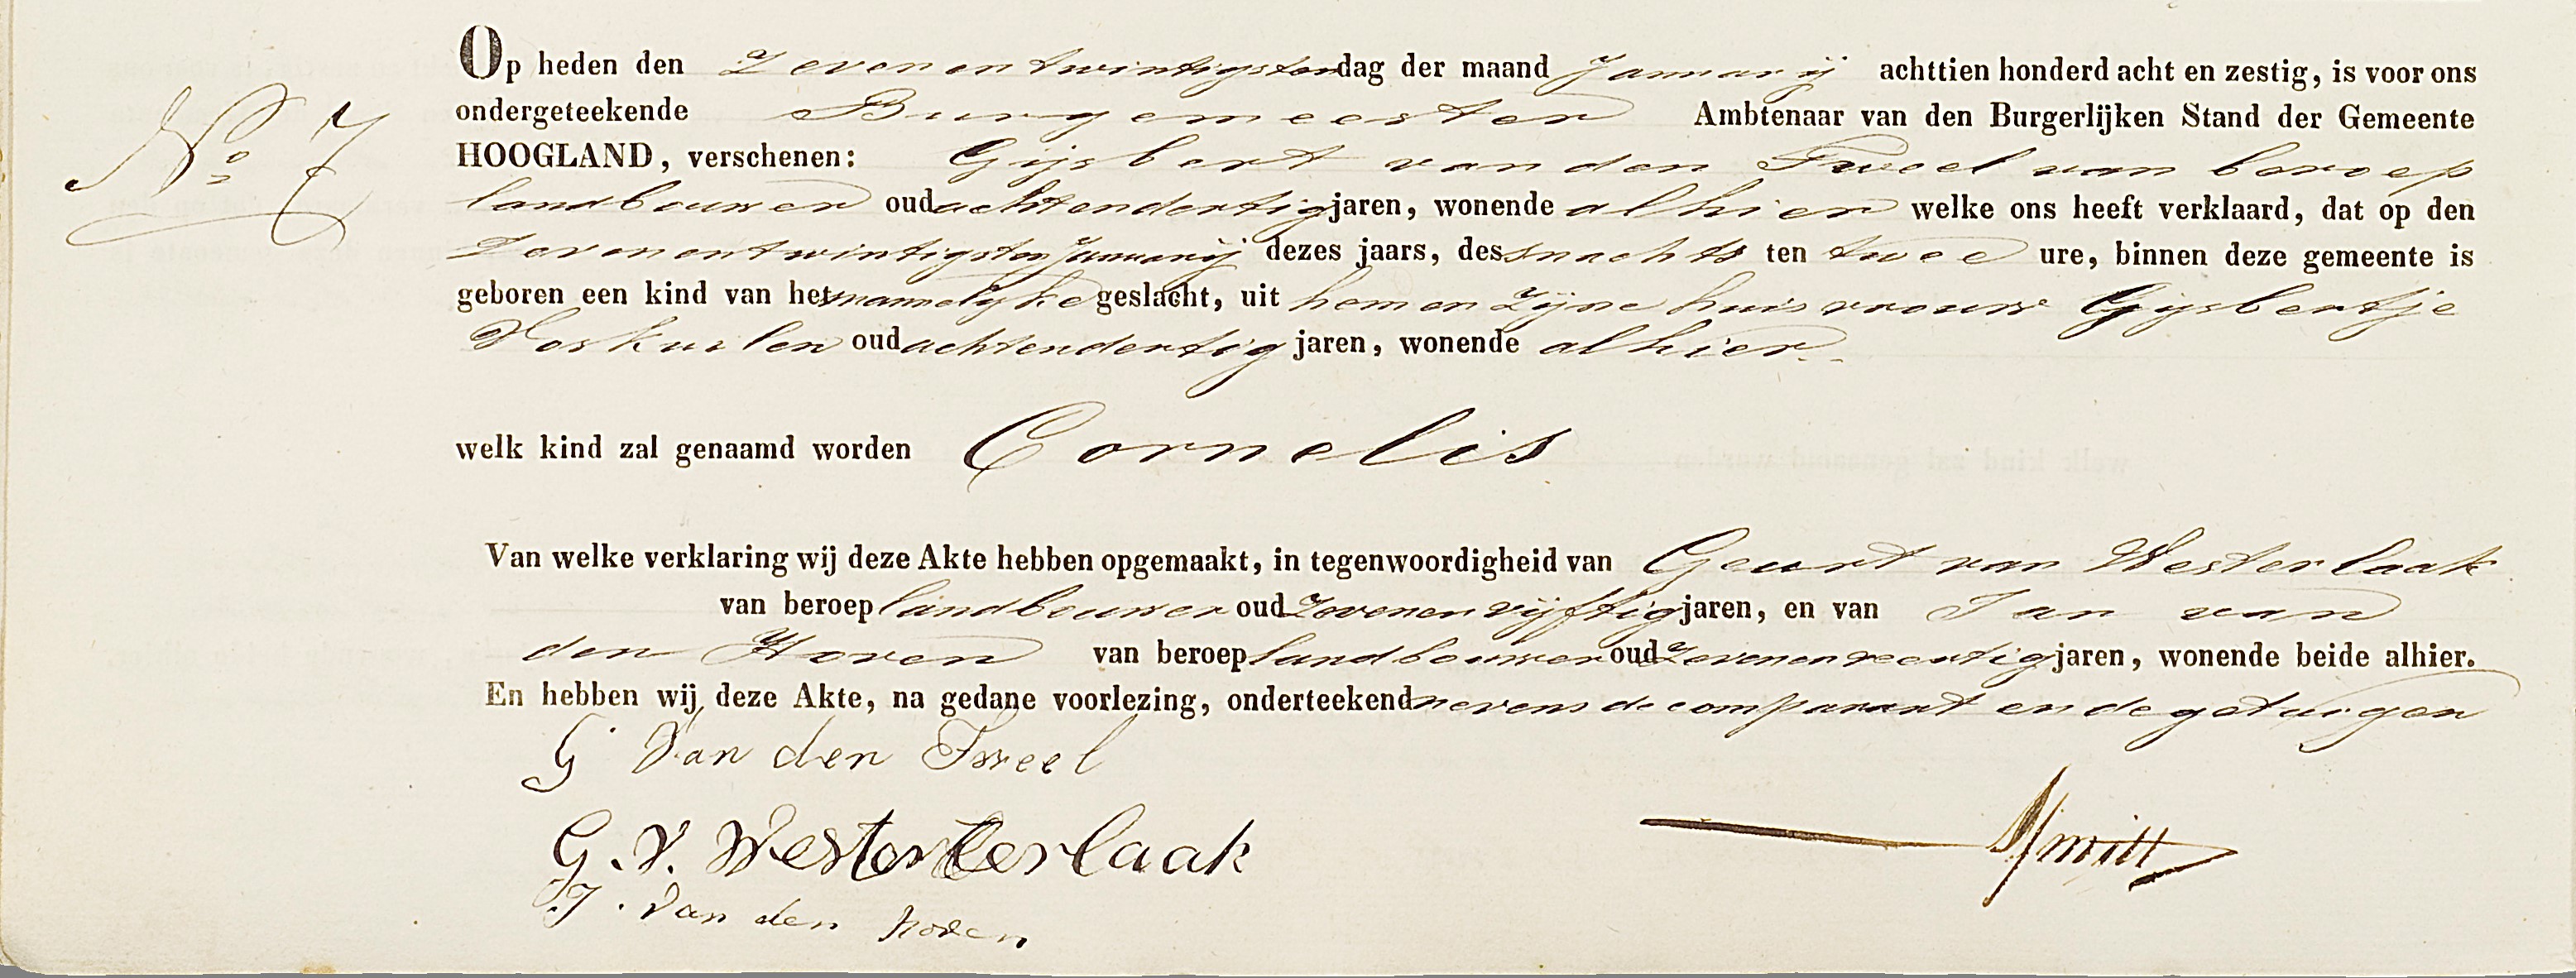 Op heden den Zevenentwintigstendag der maand Januarij achttien honderd acht en zestig, is voor ons
No 7
ondergeteekende Burgemeester Ambtenaar van den Burgerlijken Stand der Gemeente
HOOGLAND, verschenen: Gijsbert van den Tweel van beroep
landbouwer oud achtendertig jaren, wonende alhier welke ons heeft verklaard, dat op den
Zevenentwintigsten Januarij dezes jaars, des snachts ten twee ure, binnen deze gemeente is
geboren een kind van het mannelijke geslacht, uit hem en Zijne huisvrouw Gijsbertje
Voskuilen oud achtendertig jaren, wonende alhier.
welk kind zal genaamd worden Cornelis
Van welke verklaring wij deze Akte hebben opgemaakt, in tegenwoordigheid van Geurt van Westerlaak
van beroep landbouwer oud Zevenenvijftig jaren, en van Jan van
den Hoven van beroep landbouwer oud Zevenenveertig jaren, wonende beide alhier.
En hebben wij deze Akte, na gedane voorlezing, onderteekend nevens de comparant en de getuigen
G Van den Tweel
G. V. Westerterlaak
J. Van den hoven
Smitt